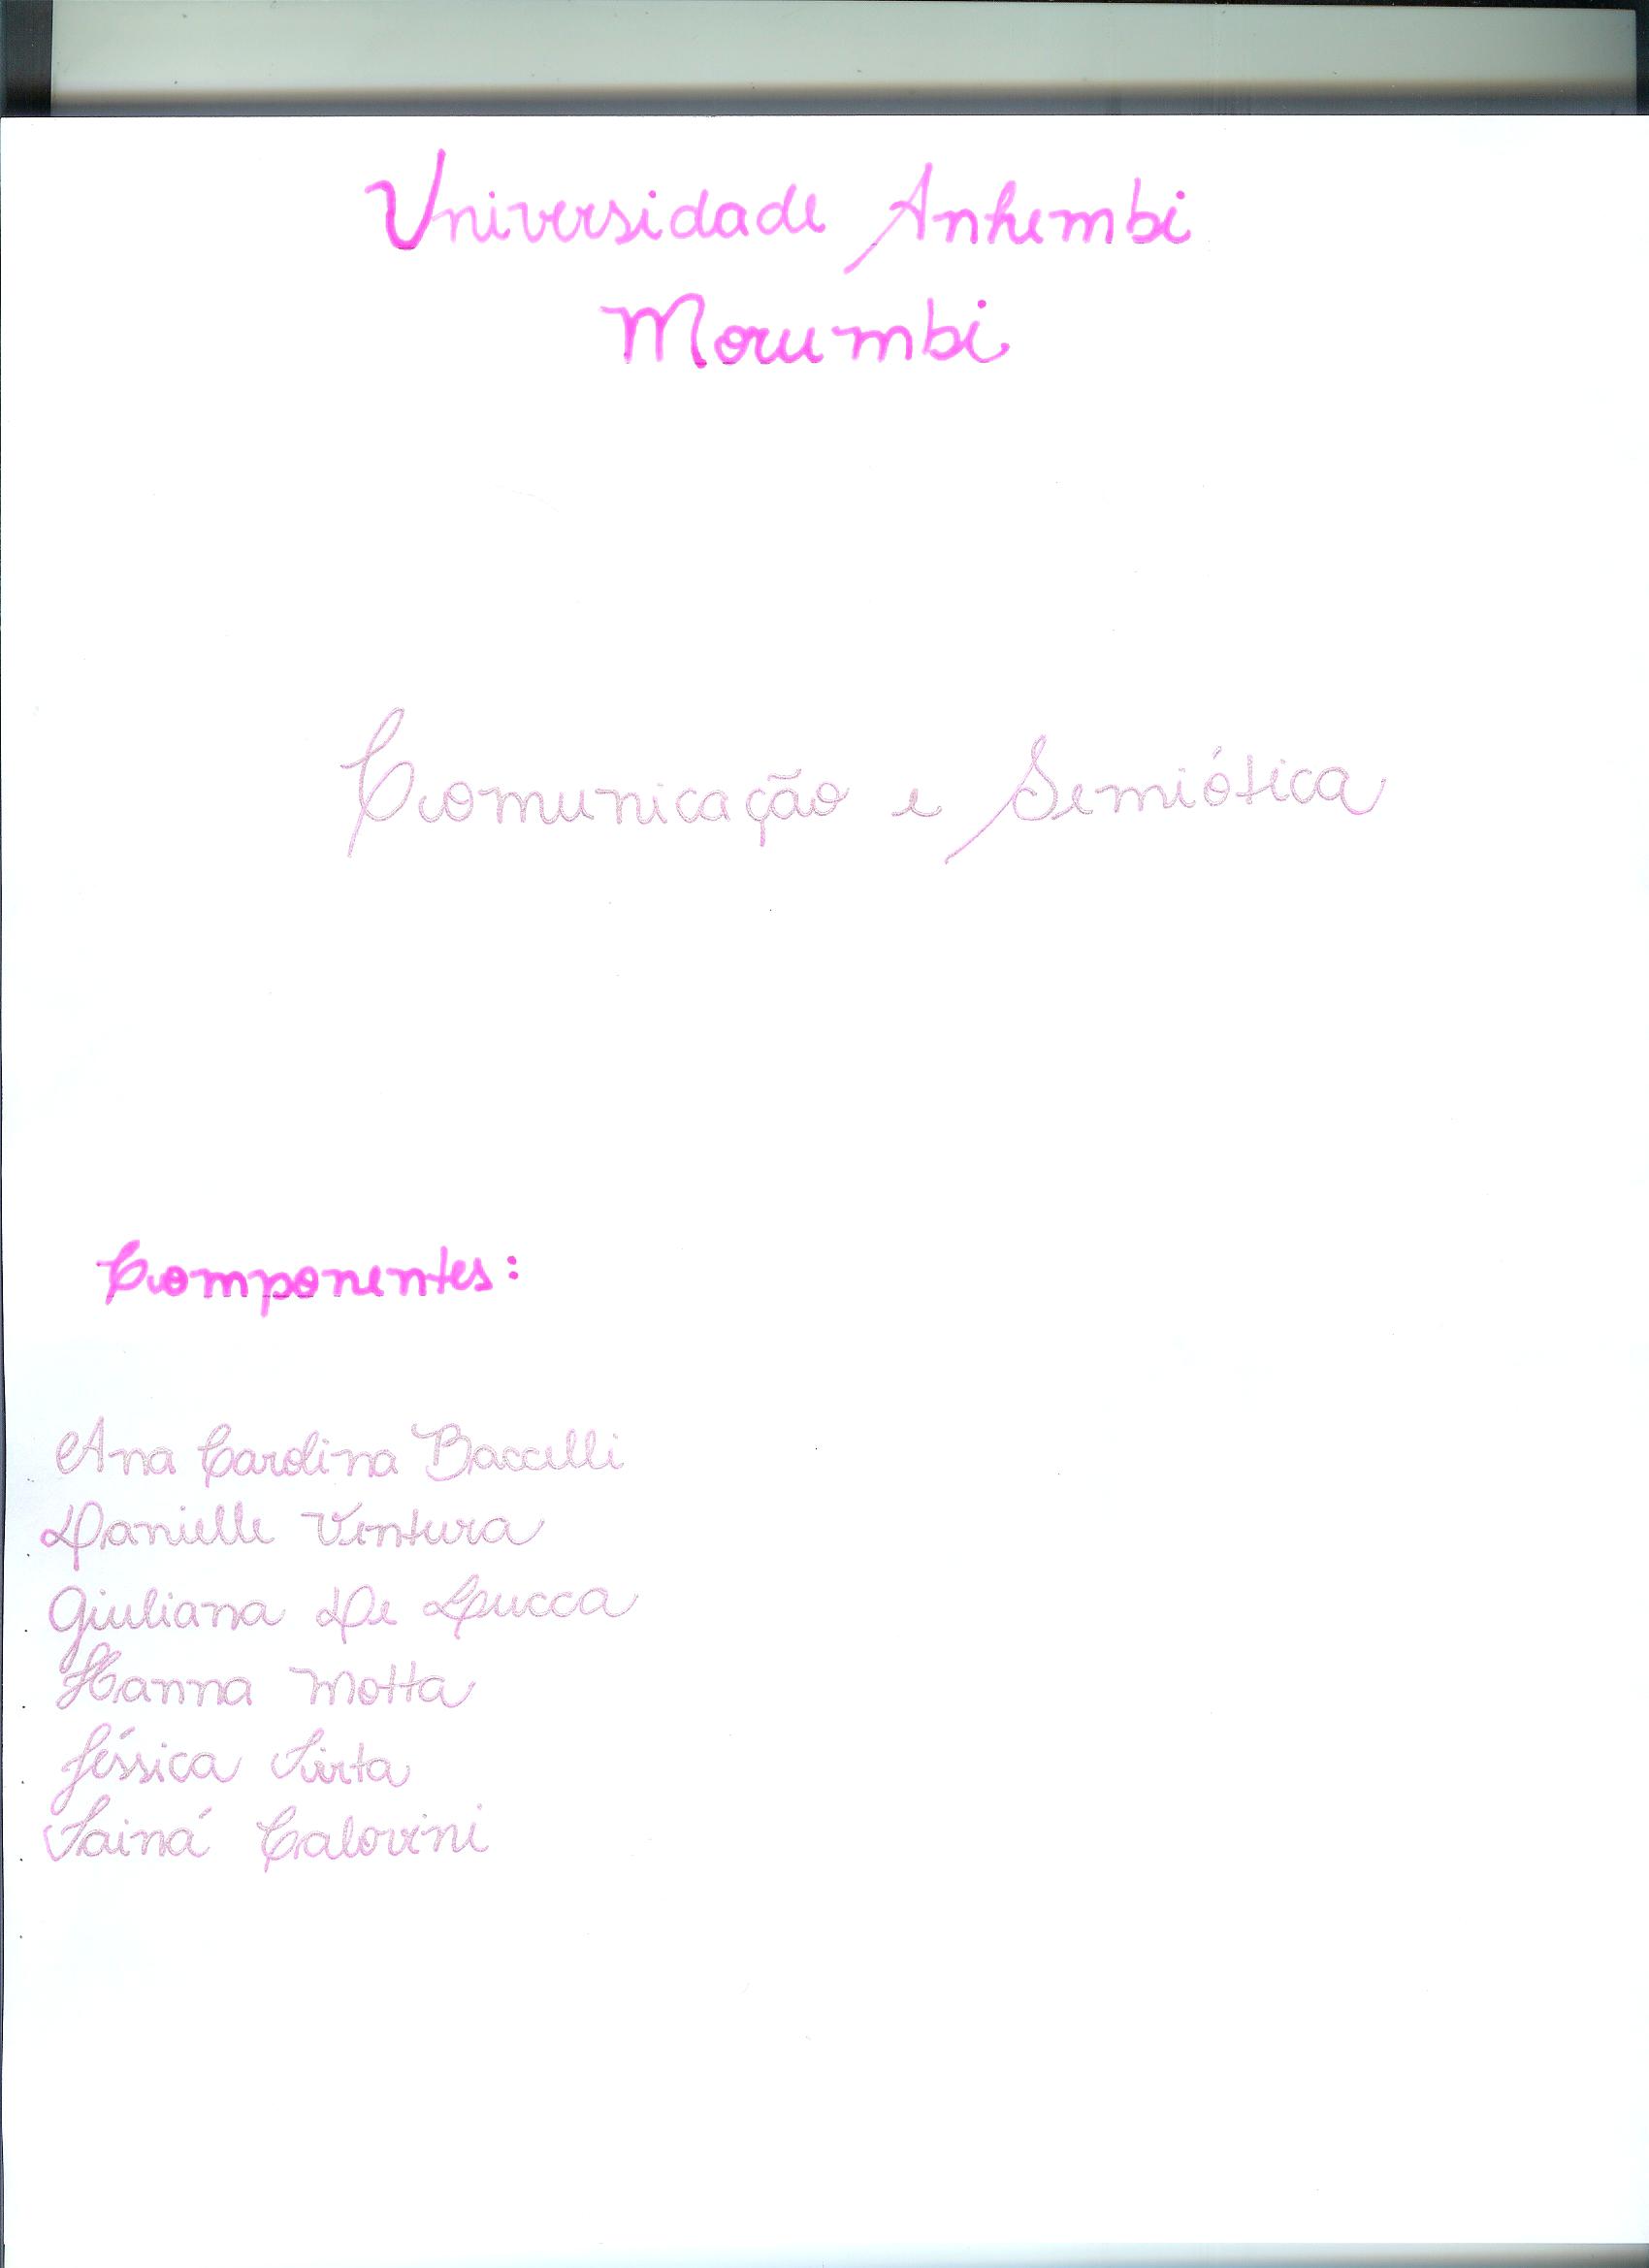 Universidade Anhembi
Morumbi
Comunicação e Semiótica
Componentes:
Ana Carolina Baccelli
Danielle Ventura
Giuliana De Lucca
Hanna Motta
Jéssica
Tainá Calovini